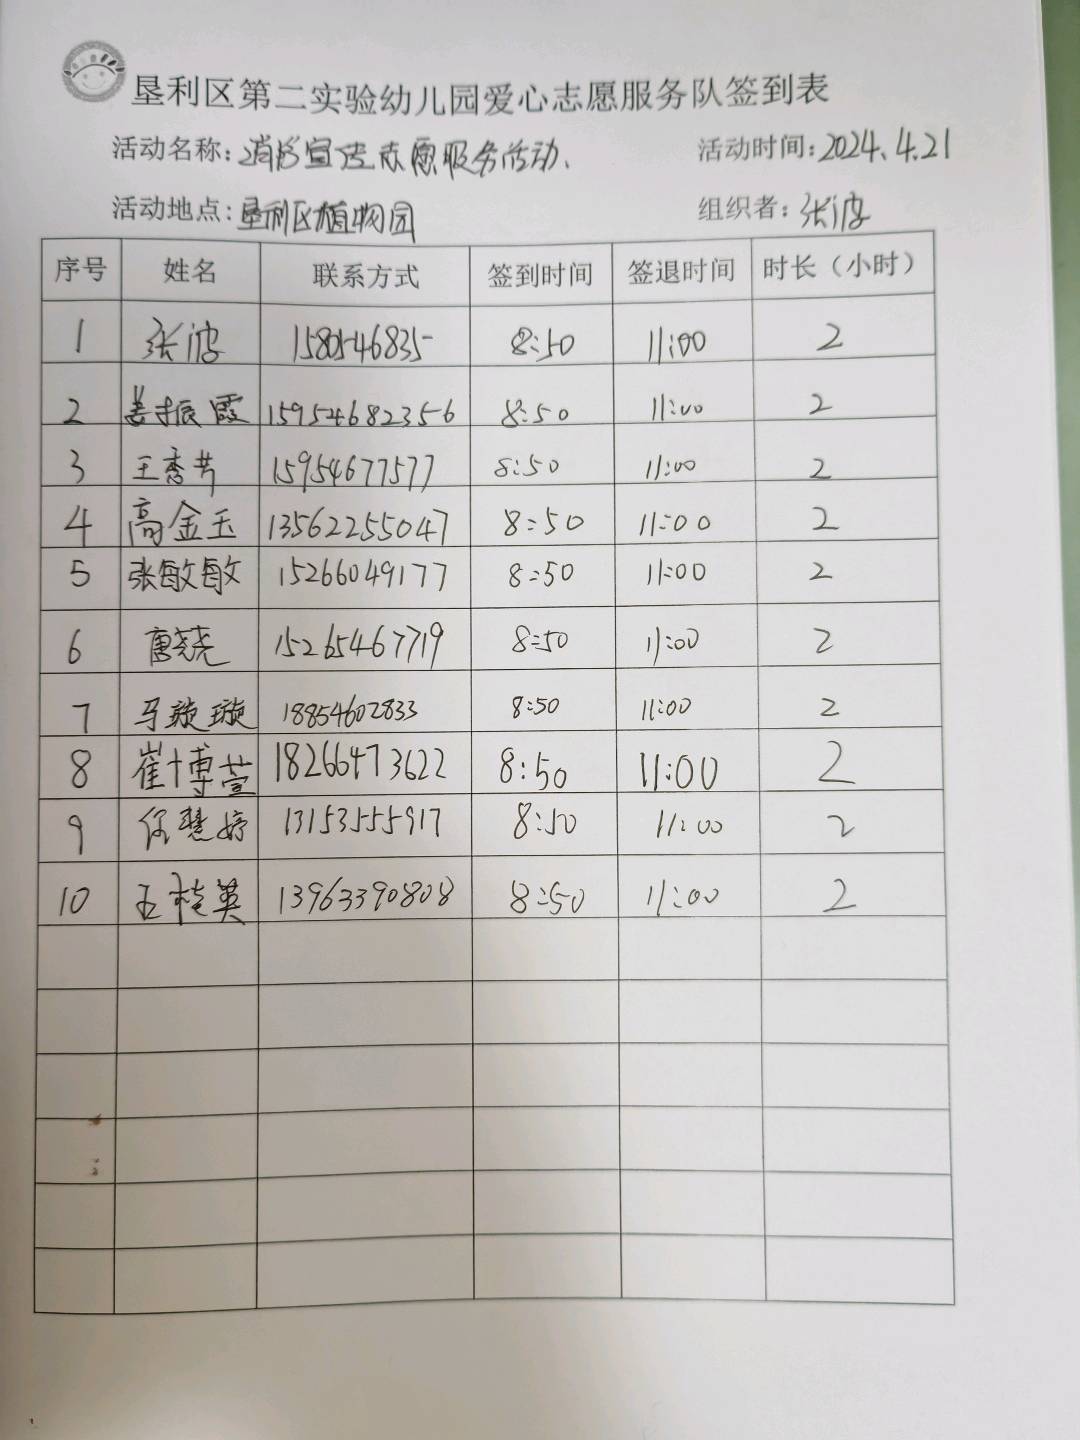 垦利区第二实验幼儿园爱心志愿服务队签到表
活动名称：消防宣传志愿服务活动、 活动时间：2024.4.21
活动地点：垦利区植物园 组织者：张波
序号 姓名 联系方式 签到时间 签退时间 时长（小时）
1 张波 8:50 11:00 2
2 姜振霞 15954682356 8:50 11:00 2
3 王秀芳 15954677577 8:50 11:00 2
4 高金玉 13562255047 8:50 11:00 2
5 张敏敏 15266049177 8:50 11:00 2
6 唐尧尧 15265467719 8:50 11:00 2
7 马璇璇 18854602833 8:50 11:00 2
8 崔博萱 18266473622 8:50 11:00 2
9 任慧婷 13153555917 8:50 11:00 2
10 王桂英 13963390808 8:50 11:00 2